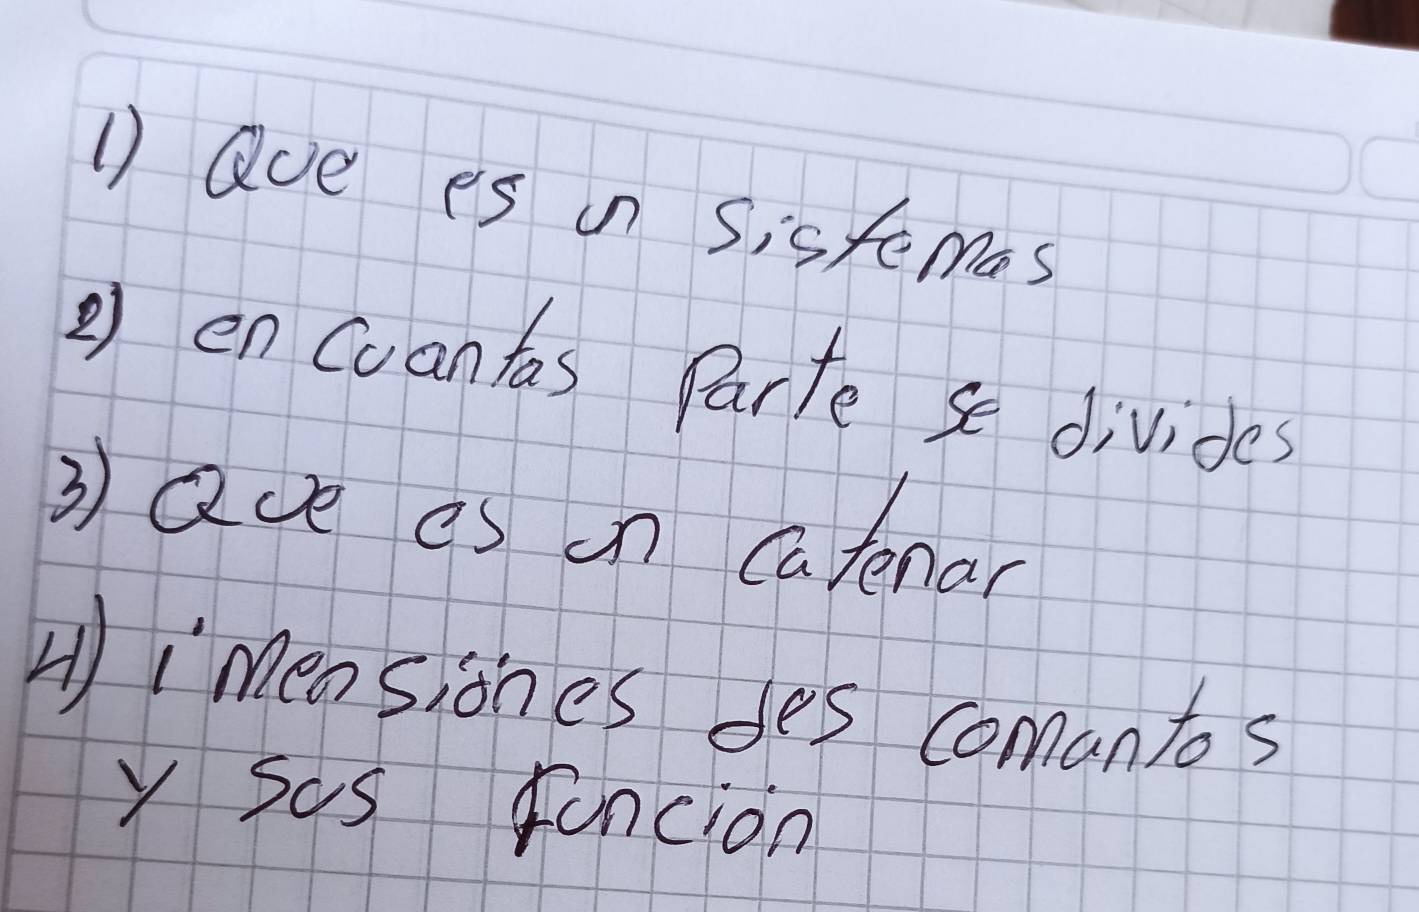 1) Que es un sistemas
2) en cuantas Parte se divides
3) Que es un catenar
4) imensiones des comantos
y sus función